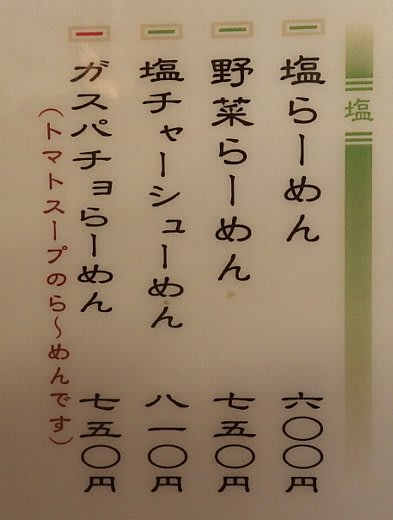 塩
塩らーめん 六〇〇円
野菜らーめん 七五〇円
塩チャーシューめん 八一〇円
ガスパチョらーめん 七五〇円
（トマトスープのら～めんです）